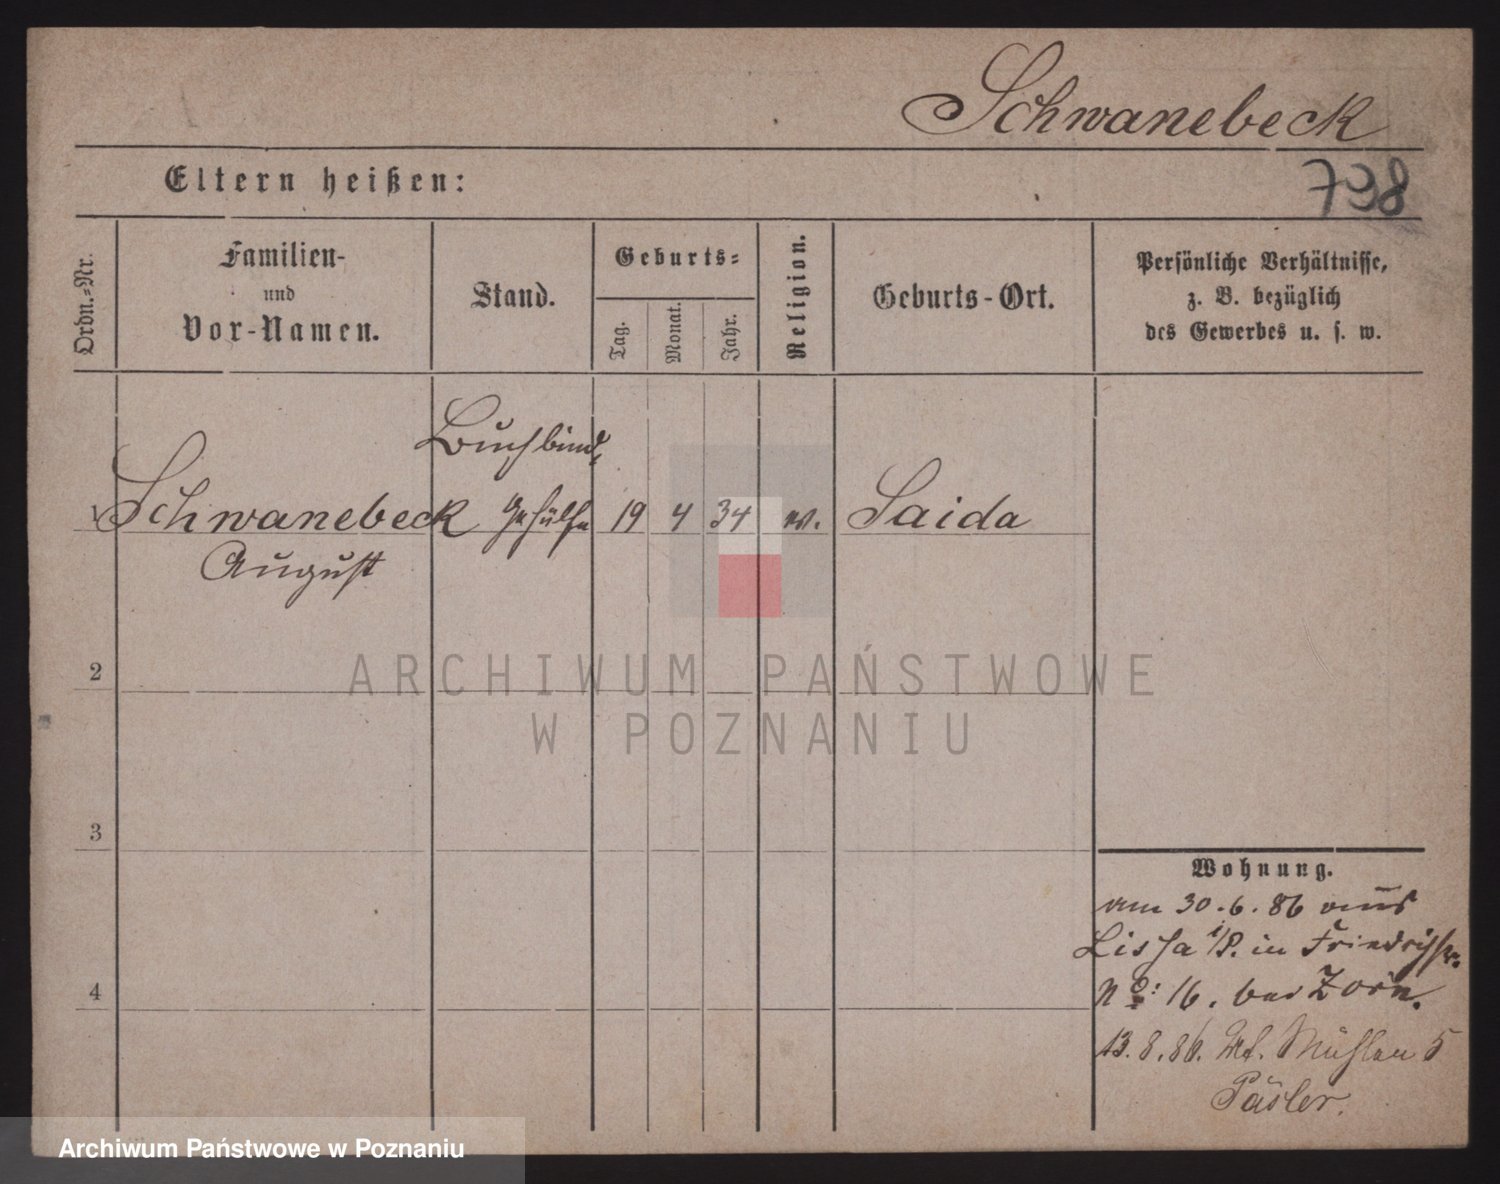 Schwanebeck
Eltern heißen:
798
Ordn.-Nr.
Familien-
und
Vor-Namen.
Stand.
Geburts-
Tag.
Monat.
Jahr.
Religion.
Geburts-Ort.
Persönliche Verhältnisse,
z. B. bezüglich
des Gewerbes u. s. w.
Buchbind.
1 Schwanebeck Gehülfe 19 4 34 ev. Saida
August
2
ARCHIWUM PAŃSTWOWE
W POZNANIU
3
4
Wohnung.
am 30.6.86 aus
Lissa i/P. in Friedrichstr.
No: 16. bei Zorn.
13.8.86. Mühlen 5
Päsler.
Archiwum Państwowe w Poznaniu